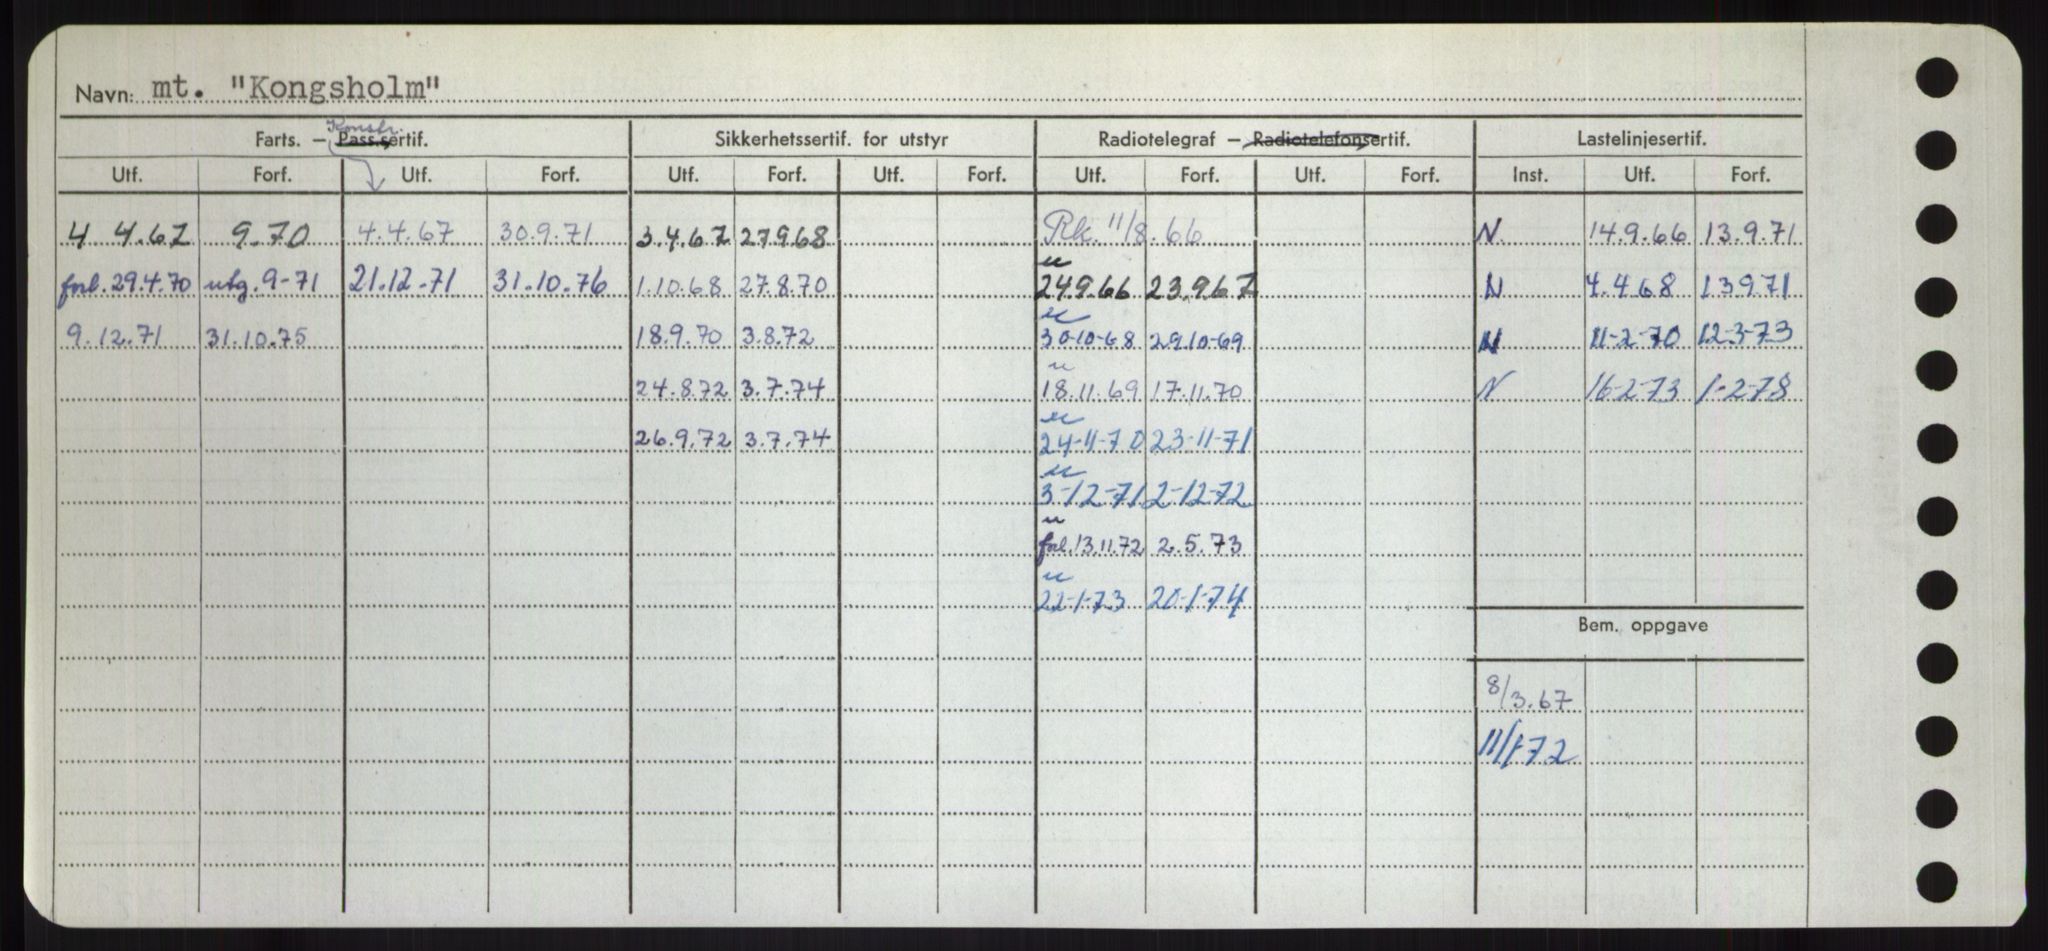 Navn: mt. "Kongsholm"
Farts. – Pass.sertif. Konstr. Sikkerhetssertif. for utstyr Radiotelegraf – Radiotelefonsertif. Lastelinjesertif.
Utf. Forf. Utf. Forf. Utf. Forf. Utf. Forf. Utf. Forf. Utf. Forf. Inst. Utf. Forf.
4 4.67 9.70 4.4.67 30.9.71 3.4.67 27968 Rk. 11/8.66 N. 14.9.66 13.9.71
forl. 29.4.70 utg. 9-71 21.12.71 31.10.76 1.10.68 27.8.70 u 24.9.66 23.9.67 N 4.4.68 13971
9.12.71 31.10.75 18.9.70 3.8.72 u 30-10-68 29.10-69 N 11-2-70 12-3-73
24.8.72 3.7.74 u 18.11.69 17.11.70 N 16-2-73 1-2-78
26.9.72 3.7.74 u 24-11-70 23-11-71
u 3-12-71 2-12-72
u forl. 13.11.72 2.5.73
u 22-1-73 20-1-74
Bem. oppgave
8/3.67
11/1-72